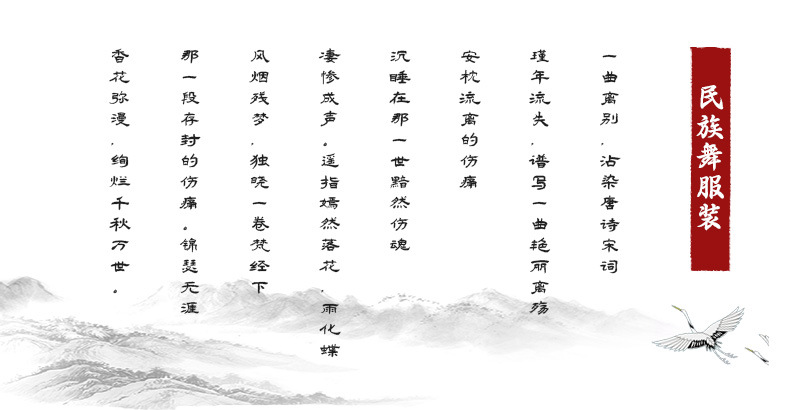 民族舞服装
一曲离别,沾染唐诗宋词
瑾年流失,谱写一曲艳丽离殇
安枕流离的伤痛
沉睡在那一世黯然伤魂
凄惨成声。遥指嫣然落花,雨化蝶
风烟残梦,独晓一卷梵经下
那一段存封的伤痛。锦瑟无涯
香花弥漫,绚烂千秋万世。